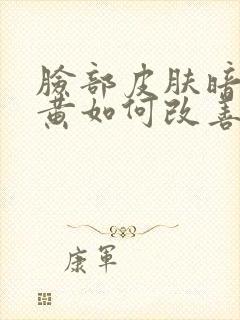 臉部皮肤暗
黄如何改善
康軍